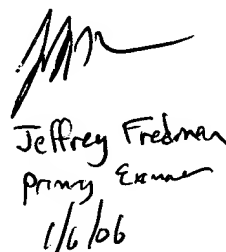 Jeffrey Fredman
Primary Examiner
1/6/06